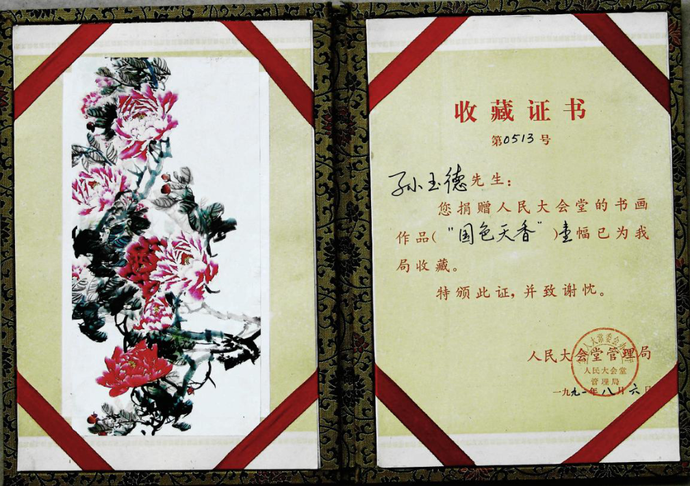 收藏证书
第0513号
孙玉德先生：
您捐赠人民大会堂的书画
作品（"国色天香"）壹幅已为我
局收藏。
特颁此证，并致谢忱。
人民大会堂管理局
人民大会堂
管理局
一九九一年八月六日